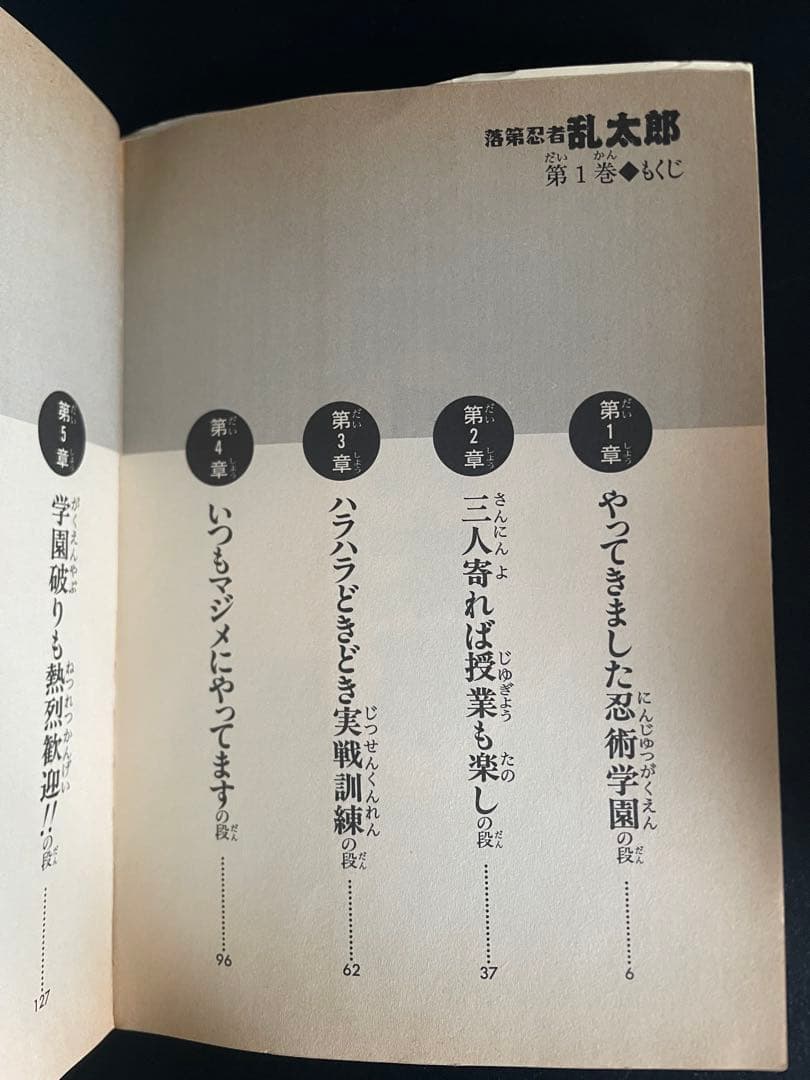 落第忍者乱太郎
第1巻◆もくじ
第1章
やってきました忍術学園の段
6
第2章
三人寄れば授業も楽しの段
37
第3章
ハラハラどきどき実戦訓練の段
62
第4章
いつもマジメにやってますの段
96
第5章
学園破りも熱烈歓迎!!の段
127